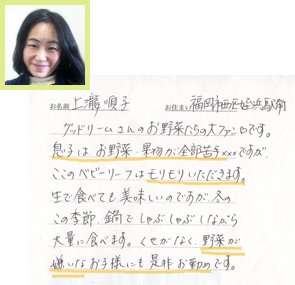 お名前 上瀧 順子 お住まい 福岡市西区姪浜駅南
グッドリームさんのお野菜たちの大ファンです。
息子はお野菜・果物が全部苦手xxxですが、
ここのベビーリーフはモリモリいただきます。
生で食べても美味しいのですが、冬の
この季節、鍋でしゃぶしゃぶしながら
大量に食べます。くせがなく、野菜が
嫌いなお子様にも是非お勧めです。